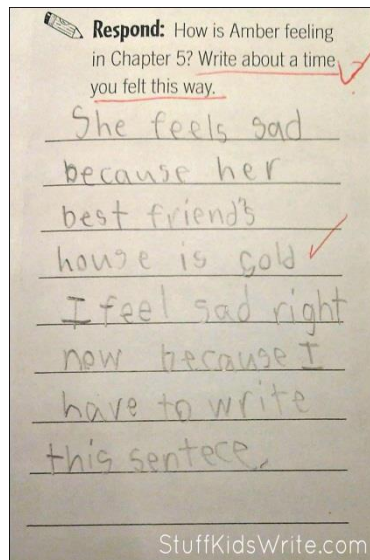 Respond: How is Amber feeling
in Chapter 5? Write about a time
you felt this way.
She feels sad
because her
best friend's
house is sold
I feel sad right
now because I
have to write
this sentece.
StuffKidsWrite.com